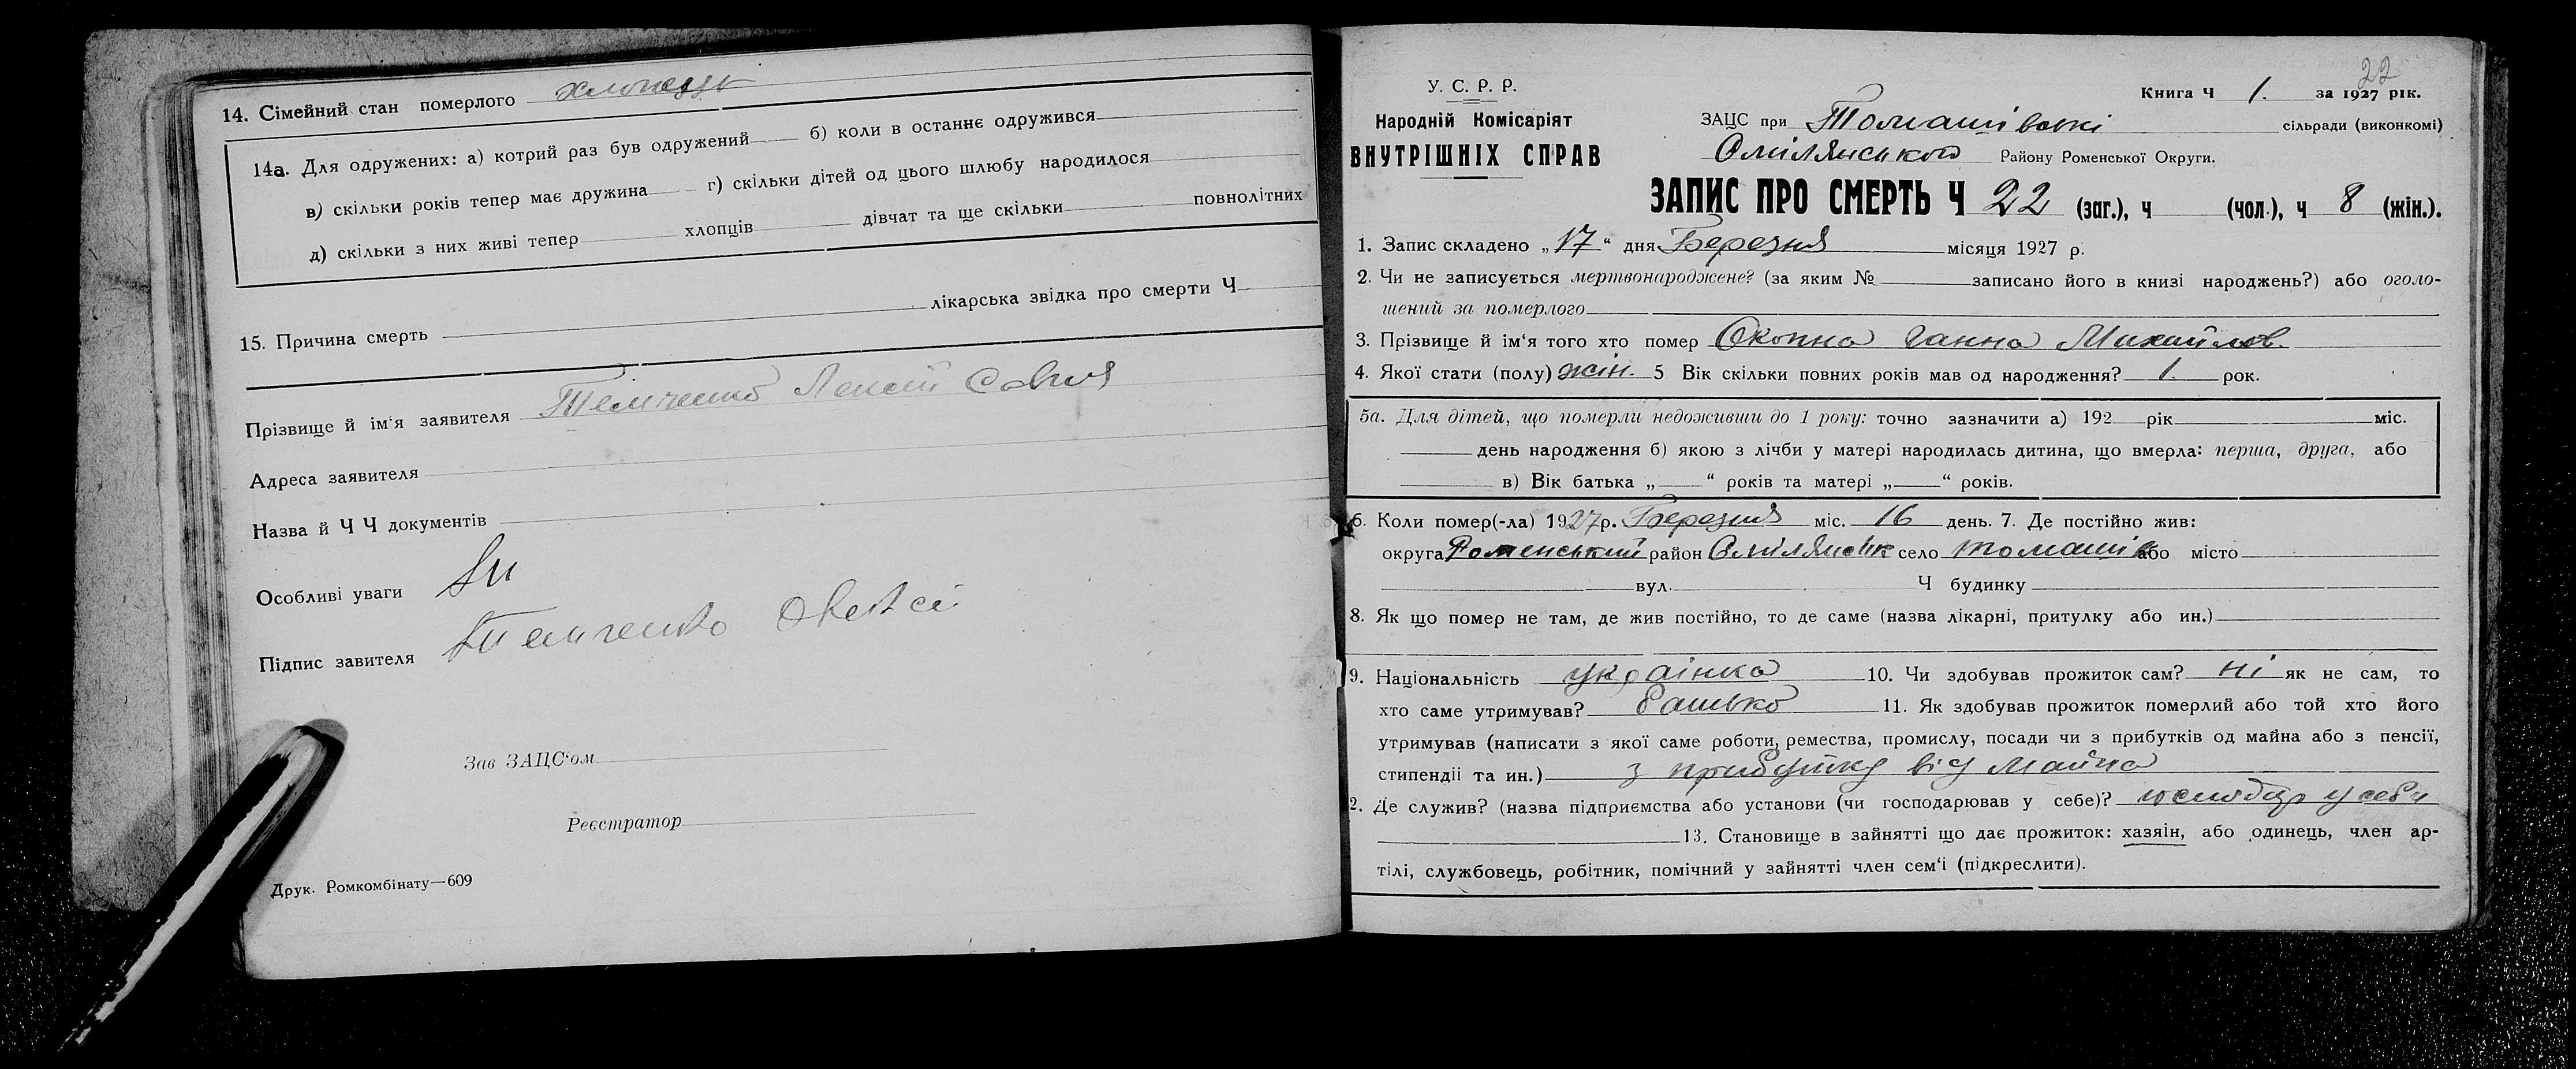 14. Сімейний стан померлого хлопець
14а. Для одружених: а) котрий раз був одружений б) коли в останнє одружився
в) скільки років тепер має дружина г) скільки дітей од цього шлюбу народилося
д) скільки з них живі тепер хлопців дівчат та ще скільки повнолітних
15. Причина смерть лікарська звідка про смерти Ч
Прізвище й ім‘я заявителя Темченко Лексій Савич
Адреса заявителя
Назва й Ч Ч документів
Особливі уваги
Підпис завителя Темченко Олексі
Зав ЗАЦС‘ом
Реєстратор
Друк. Ромкомбінату—609
22
У. С. Р. Р.
Народній Комісаріят
ВНУТРІШНІХ СПРАВ
Книга Ч 1. за 1927 рік.
ЗАЦС при Томашівські сільради (виконкомі)
Смілянського Району Роменської Округи.
ЗАПИС ПРО СМЕРТЬ Ч 22 (заг.), ч (чол.), ч 8 (жін.).
1. Запис складено „17“ дня Березня місяця 1927 р.
2. Чи не записується мертвонароджене? (за яким № записано його в книзі народжень?) або оголо-
шений за померлого
3. Прізвище й ім‘я того хто помер Окопна Ганна Михайлов.
4. Якої стати (полу) жін. 5 Вік скільки повних років мав од народження? 1. рок.
5а. Для дітей, що померли недоживши до 1 року: точно зазначити а) 192 рік міс.
день народження б) якою з лічби у матері народилась дитина, що вмерла: перша, друга, або
в) Вік батька „ “ років та матері „ “ років.
6. Коли помер(-ла) 1927р. Березня міс. 16 день. 7. Де постійно жив:
округа Роменський район Смілянськ село Томашів або місто
вул. Ч будинку
8. Як що помер не там, де жив постійно, то де саме (назва лікарні, притулку або ин.)
9. Національність українка 10. Чи здобував прожиток сам? ні як не сам, то
хто саме утримував? батько 11. Як здобував прожиток померлий або той хто його
утримував (написати з якої саме роботи, ремества, промислу, посади чи з прибутків од майна або з пенсії,
стипендії та ин.) з прибутку від майна
2. Де служив? (назва підприємства або установи (чи господарював у себе)? господар у себе
13. Становище в зайнятті що дає прожиток: хазяїн, або одинець, член ар-
тілі, службовець, робітник, помічний у зайнятті член сем‘ї (підкреслити).